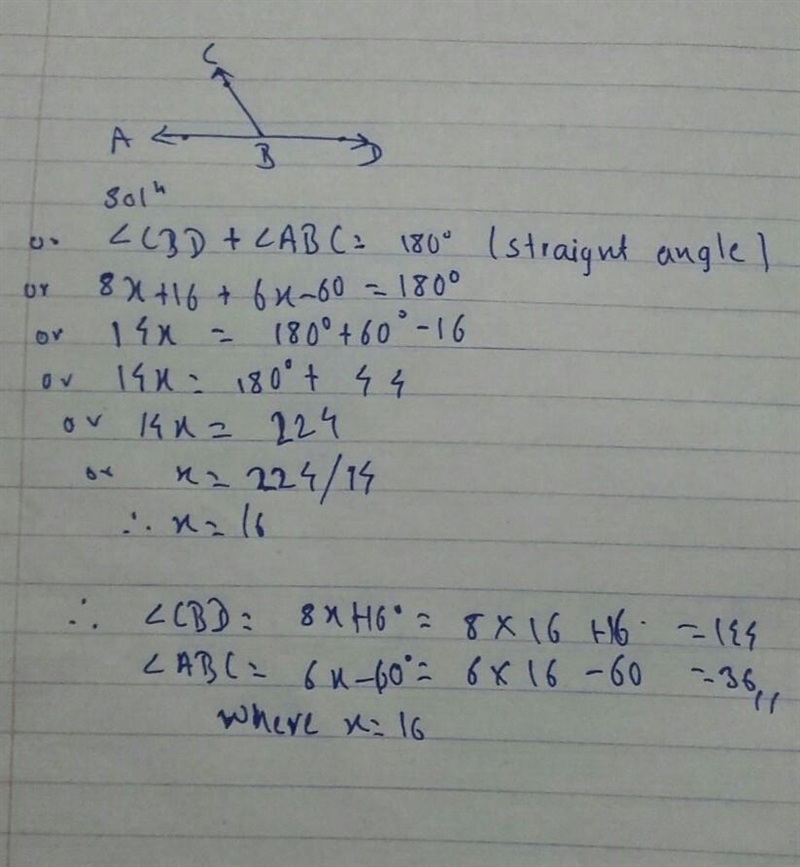 C
A B D
Solⁿ
or ∠CBD + ∠ABC = 180° (straignt angle)
or 8x+16 + 6x-60 = 180°
or 14x = 180°+60°-16
or 14x = 180°+ 44
or 14x = 224
or x = 224/14
∴ x = 16
∴ ∠CBD = 8x+16° = 8×16 +16 = 144
∠ABC = 6x-60° = 6×16 -60 = 36,,
where x = 16